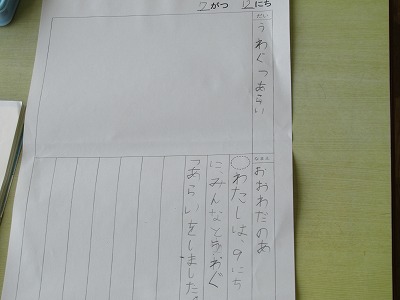 7がつ 12にち
だい
うわぐつあらい
なまえ
おおわだのあ
わたしは、9にち
に、みんなとうわぐ
つあらいをしました。